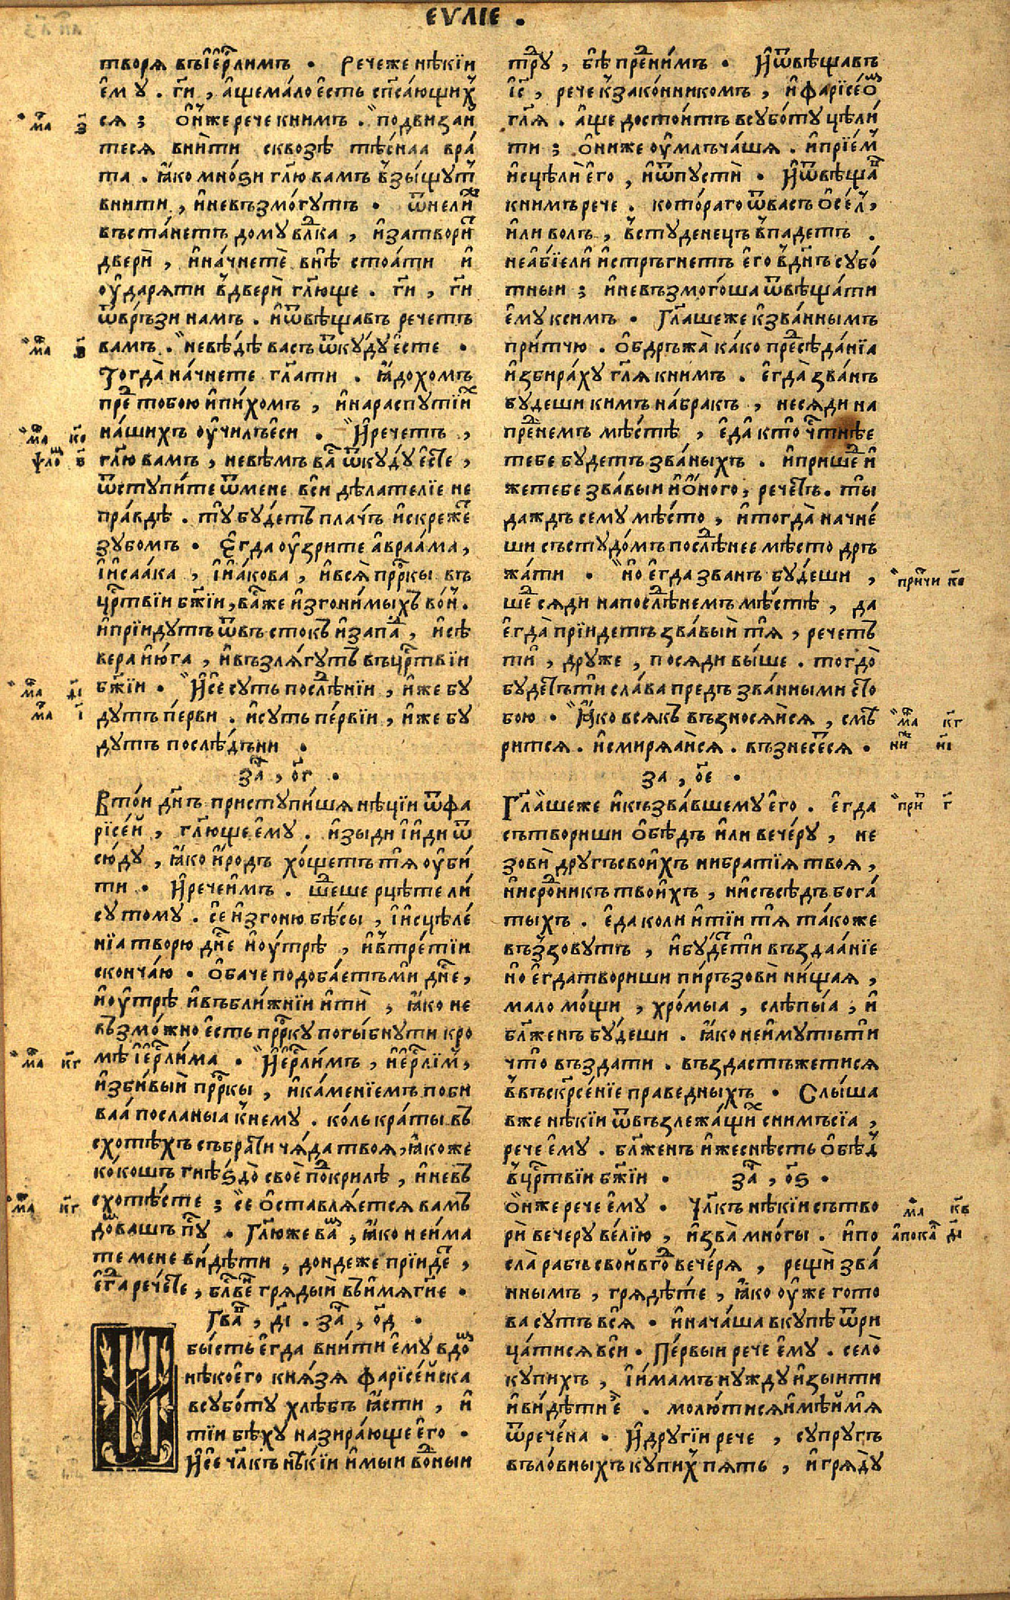 ЕѴЛІЕ .
творя въ і҆єрⷭ҇лимъ . Рече же нѣкїи
є҆му . гⷭ҇и , а҆ще мало єсть спⷭ҇са́ющихⷭ҇
ся ; ѻ҆́нже рече к ним . подвиза́и
теся вни́ти сквозѣ тѣ́снаа вра́
та . ꙗ҆ко мно́ѕи гл҃ю вамъ в̾зы́щутⷮ
вни́ти , и҆ невъзмо́гутъ . ѿнели́ⷤ
въста́нетъ дому влⷣка , и҆ затвори́ⷮ
двери̑ , и҆ на́чнете̑ внѣ̀ стоа́ти и҆
ᲂу҆даря́ти в̾двери̑ гл҃юще . гⷭ҇и , гⷭ҇и
ѿвръ́зи намъ . и҆ ѿвѣщавъ речетъ
вамъ . не вѣ́дѣ васъ ѿкуду є҆сте .
Тогда̀ на́чнете гл҃ати . ꙗ҆дохомъ
преⷣ тобою и҆ пи́хомъ , и҆ на распу́тїиⷯ
на́шихъ ᲂу҆чи́лъ є҆си . И҆ речетъ ,
гл҃ю вамъ , не вѣмъ ваⷭ҇ ѿкуду є҆стⷭ҇е ,
ѿступи́те ѿ мене вси дѣлателїе не
пра́вдѣ . ту бу́детъ пла́чъ и҆ скрежеⷮ
зубомъ . Є҆гда ᲂу҆зрите а҆враа́ма ,
і҆ и҆саа́ка , і҆ и҆а́кова , и҆ вся̀ прⷪ҇ркы въ
црⷭ҇твїи бж҃їи , ваⷭ҇ же и҆згони́мыхъ во́нъ .
и҆ прїидутъ ѿ въстокъ и҆ запаⷣ , и҆ сѣ́
вера и҆ ю҆га , и҆ възля́гутъ въ црⷭ҇твїи
бж҃їи . И҆ се суть послѣⷣнїи , и҆же бу
дутъ пе́рви . и҆ суть пе́рвїи , и҆же бу
дутъ послѣ́дъни .
заⷱ , о҃г .
В то́и дн҃ь приступи́шя нѣ́цїи ѿ фа
рїсе́и , гл҃юще є҆му . и҆зыди і҆ и҆ди ѿ
сю́ду , ꙗ҆ко и҆́родъ хо́щетъ тя ᲂу҆би́
ти . И҆ рече и҆мъ . шеⷣше рцѣте ли́
су тому . се и҆згоню бѣ́сы , і҆ и҆сцѣле́
нїа творю дн҃е и҆ ᲂу҆трѣ , и҆ в̾трє́тїи
сконча́ю . ѻ҆баче подоба́етъ ми дн҃е ,
и҆ ᲂу҆трѣ и҆ въ бли́жнїи и҆ти̑ , ꙗ҆ко не
възмо́жно є҆сть прⷪ҇рку погы́бнути кро
мѣ і҆єрⷭ҇ли́ма . И҆єрⷭ҇ли́мъ , и҆єрⷭ҇ли́мъ ,
и҆зби́выи прⷪ҇ркы , и҆ ка́менїемъ поби
ваа посла́ныа к̾нему . ко́ль кра́ты въ
схотѣ́хъ събраⷮти ча́да твоя , ꙗ҆коже
ко́кошъ гнѣ́здо̀ свое поⷣкрилѣ , и҆ невъ
схотѣ́сте ; се ѻ҆ставля́ется вамъ
доⷨвашъ пꙋⷭ҇ . Гл҃ю же ваⷨ , ꙗ҆ко не и҆ма
те мене ви́дѣти , дондеже прїидеⷮ ,
є҆гⷣа речетⷭ҇е , блⷭ҇ве́нъ гряды́й въ и҆мя гⷭ҇не .
Глаⷡ , д҃і . заⷱ , о҃д .
бы́сть є҆гда вни́ти є҆му въ доⷨ
нѣ́коего кня́зя фарїсе́йска
в субо́ту хлѣ́бъ ꙗ҆сти , и҆
тїи бѣ́ху назира́юще є҆го .
И҆ се чл҃къ нѣ́кїи и҆мыи воⷣныи
труⷣ , бѣ̀ преⷣ ни́мъ . И҆ ѿвѣщавъ
і҆с҃ , рече к̾ зако́нникомъ , и҆ фарїсе́ѡⷨ
гл҃я . а҆ще досто́итъ в субо́ту цѣли
ти ; ѻ҆ни же ᲂу҆млъча́шя . и҆ прїе́мъ
и҆сцѣли̑ є҆го , и҆ ѿпусти̑ . И҆ ѿвѣщаⷡ
к нимъ рече . кото́раго ѿ васъ ѻ҆се́лъ ,
и҆ли волъ , в̾ студене́цъ в̾падетъ .
не а҆бїе ли и҆стръ́гнетъ є҆го в̾ дн҃ь субо́
тныи ; и҆ невъзмого́ша ѿвѣща́ти
є҆му к симъ . Гл҃аше же к̾ зва́ннымъ
при́тчю . ѻ҆бдръжа̀ ка́ко преⷣсѣда́нїа
и҆збира́ху гл҃я к нимъ . є҆гда̀ зва́нъ
бу́деши кимъ на бра́къ , не ся́ди на
преⷣнемъ мѣ́стѣ , є҆да̀ кто̀ чⷭ҇тнѣ́е
тебе бу́детъ зва́ныхъ . и҆ пришеⷣ и҆
же тебе зва́выи и҆ ѻ҆́ного , речетⷮъ . ты
даждъ сему мѣ́сто , и҆ тогда̀ начне́
ши съ студо́мъ послѣⷣнее мѣ́сто дръ
жа́ти . Но є҆гда зва́нъ бу́деши ,
шеⷣ ся́ди на послѣⷣнемъ мѣ́стѣ , да
є҆гда̀ прїидетъ зва́выи тя , рече́тъ
ти , дру́же , пося́ди вы́ше . тогдⷶ
бу́детⷮъ ти сла́ва предъ зва́нными с̾ то
бою . Ꙗ҆ко всякъ възнося́йся , смѣ
рится . и҆ смиря́айся . възнесеⷮся .
за , о҃е .
Гл҃аше же и҆ къ зва́вшему є҆го . є҆гда
сътвори́ши ѻ҆бѣ́дъ и҆ли вече́ру , не
зови̑ дру́гъ свои́хъ ни бра́тїа твоя ,
ни срⷪ҇дникъ твои́хъ , ни съсѣ́дъ бога́
тыхъ . є҆да коли и҆ тїи тя та́коже
въззову́тъ , и҆ бу́детⷮти въздаа́нїе
но є҆гда твори́ши пи́ръ зови̑ ни́щая ,
мало мо́щи , хро́мыа , слѣ́пыа , и҆
блаⷤ҇енъ бу́деши . ꙗ҆ко не и҆муть ти
что̀ възда́ти . възда́стъ же ти ся
в̾ въскрⷭ҇се́нїе пра́ведныхъ . Слы́ша
вже нѣ́кїи ѿ възлежа́щиⷯ с ни́мъ сїа ,
рече є҆му . блⷤ҇енъ и҆же снѣ́стъ ѻ҆бѣ́дъ
в̾ црⷭ҇твїи бж҃їи . заⷱ , о҃ѕ .
Ѻ҆́нже рече є҆му . Чл҃къ нѣ́кїи сътво
ри̑ вечеру ве́лїю , и҆ зва̀ мно́гы . и҆ по
сла̀ ра́бъ свои́ въ гоⷣ вече́ря , рещи̑ зва́
ннымъ , гряде́те , ꙗ҆ко ᲂу҆же гото
ва су́тъ вся̀ . и҆ нача́ша вку́пѣ ѿри
ца́тися вси . Пе́рвыи рече є҆му . село̀
купи́хъ , і҆ и҆мамъ ну́жду и҆зы́ити
и҆ ви́дѣти є҆̀ . молю́тися и҆мѣи́ мя
ѿрече́на . И҆ други́и рече , супру́гъ
въло́вныхъ купи́хъ пя́ть , и҆ гряду̀